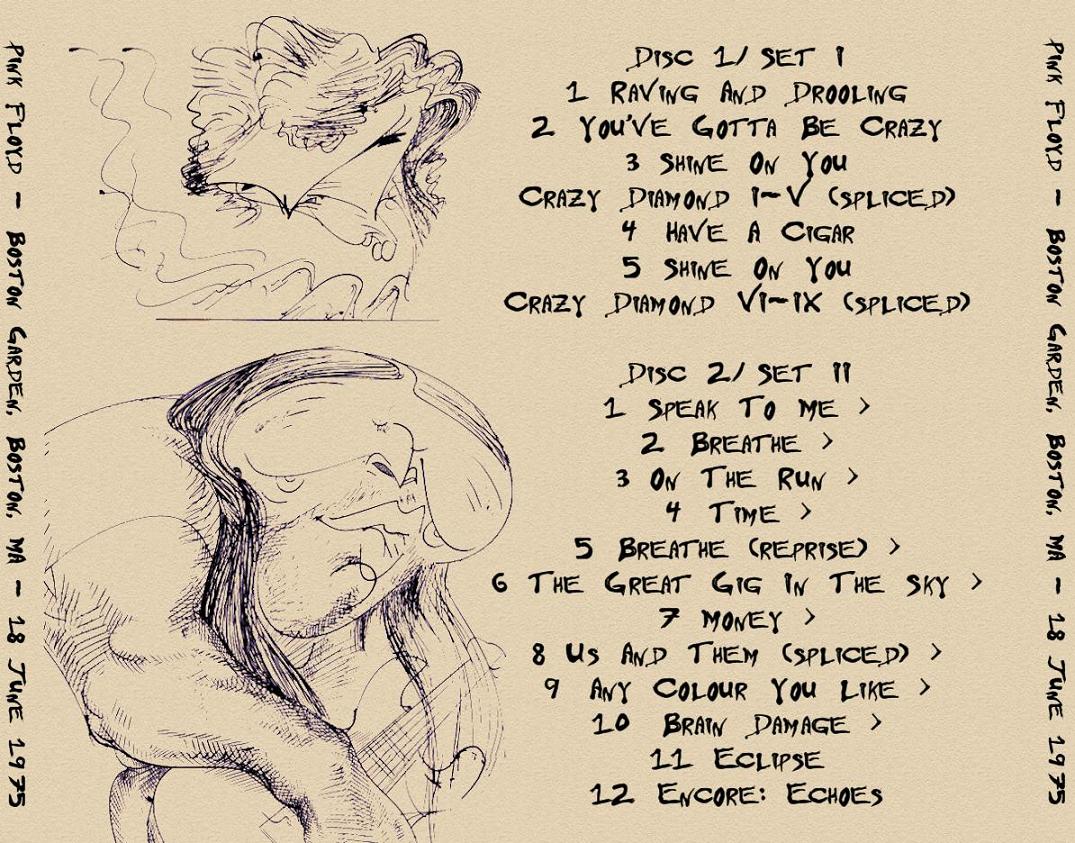 PINK FLOYD – BOSTON GARDEN, BOSTON, MA – 18 JUNE 1975
DISC 1/ SET I
1 RAVING AND DROOLING
2 YOU'VE GOTTA BE CRAZY
3 SHINE ON YOU
CRAZY DIAMOND I-V (SPLICED)
4 HAVE A CIGAR
5 SHINE ON YOU
CRAZY DIAMOND VI-IX (SPLICED)
DISC 2/ SET II
1 SPEAK TO ME >
2 BREATHE >
3 ON THE RUN >
4 TIME >
5 BREATHE (REPRISE) >
6 THE GREAT GIG IN THE SKY >
7 MONEY >
8 US AND THEM (SPLICED) >
9 ANY COLOUR YOU LIKE >
10 BRAIN DAMAGE >
11 ECLIPSE
12 ENCORE: ECHOES
PINK FLOYD – BOSTON GARDEN, BOSTON, MA – 18 JUNE 1975